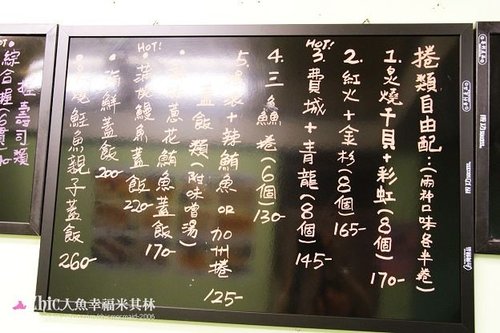 捲類自由配：(兩種口味各半卷)
1. 炙燒干貝+彩虹(8個) 170-
2. 紅火+金杉(8個) 165-
HOT!
3. 費城+青龍(8個) 145-
4. 三鱻捲(6個) 130-
5. 辣鮪魚 or 加州捲 125-
蓋飯類(附味噌湯)
蔥花鮪魚蓋飯 170-
HOT!
蒲燒鰻魚蓋飯 220-
海鮮蓋飯 200-
鮭魚親子蓋飯 260-
HOT!
握壽司類
綜合握(6貫)
hic大魚幸福米其林